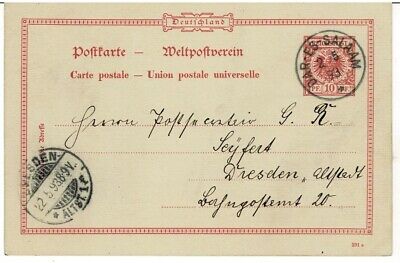 Deutschland
Postkarte – Weltpostverein
Carte postale – Union postale universelle
DAR-ES-SALAAM
PF. 10
Herrn Postsekretär G. R.
Seyfert
Dresden, Altstadt
Bahnpostamt 20.
DRESDEN-
ALTST. 1
391 a